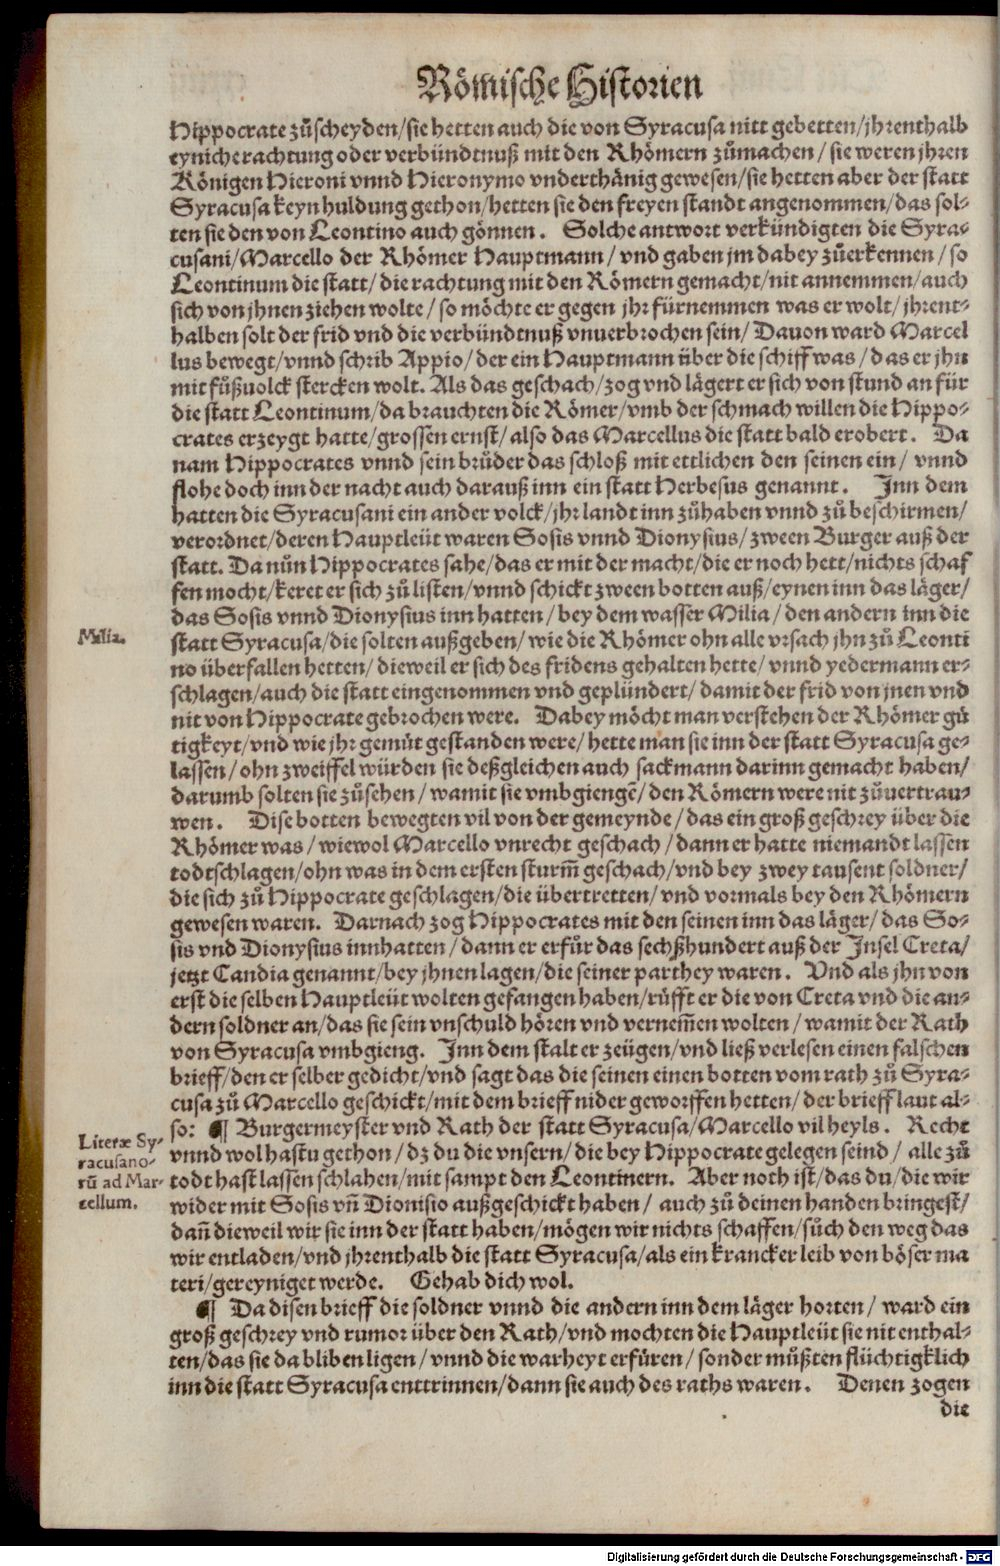 Römische Historien
Hippocrate zůscheyden/sie hetten auch die von Syracusa nitt gebetten/jhrenthalb
eyniche rachtung oder verbündtnuß mit den Rhömern zůmachen/sie weren jhren
Königen Hieroni vnnd Hieronymo vnderthänig gewesen/sie hetten aber der statt
Syracusa keyn huldung gethon/hetten sie den freyen standt angenommen/das sol-
ten sie den von Leontino auch gönnen. Solche antwort verkündigten die Syra-
cusani/Marcello der Rhömer Hauptmann/vnd gaben jm dabey zůerkennen/so
Leontinum die statt/die rachtung mit den Römern gemacht/nit annemmen/auch
sich von jhnen ziehen wolte/so möchte er gegen jhr fürnemmen was er wolt/jhrent-
halben solt der frid vnd die verbündtnuß vnuerbrochen sein/Dauon ward Marcel
lus bewegt/vnnd schrib Appio/der ein Hauptmann über die schiff was/das er jhn
mit fůßuolck stercken wolt. Als das geschach/zog vnd lägert er sich von stund an für
die statt Leontinum/da brauchten die Römer/vmb der schmach willen die Hippo-
crates erzeygt hatte/grossen ernst/also das Marcellus die statt bald erobert. Da
nam Hippocrates vnnd sein brůder das schloß mit ettlichen den seinen ein/vnnd
flohe doch inn der nacht auch darauß inn ein statt Herbesus genannt. Inn dem
hatten die Syracusani ein ander volck/jhr landt inn zůhaben vnnd zů beschirmen/
verordnet/deren Hauptleüt waren Sosis vnnd Dionysius/zween Burger auß der
statt. Da nůn Hippocrates sahe/das er mit der macht/die er noch hett/nichts schaf
fen mocht/keret er sich zů listen/vnnd schickt zween botten auß/eynen inn das läger/
das Sosis vnnd Dionysius inn hatten/bey dem wasser Milia/den andern inn die
Milia.
statt Syracusa/die solten außgeben/wie die Rhömer ohn alle vrsach jhn zů Leonti
no überfallen hetten/dieweil er sich des fridens gehalten hette/vnnd yedermann er-
schlagen/auch die statt eingenommen vnd geplündert/damit der frid von jnen vnd
nit von Hippocrate gebrochen were. Dabey möcht man verstehen der Rhömer gü
tigkeyt/vnd wie jhr gemüt gestanden were/hette man sie inn der statt Syracusa ge-
lassen/ohn zweiffel würden sie deßgleichen auch sackmann darinn gemacht haben/
darumb solten sie zůsehen/wamit sie vmbgiengē/den Römern were nit zůuertrau-
wen. Dise botten bewegten vil von der gemeynde/das ein groß geschrey über die
Rhömer was/wiewol Marcello vnrecht geschach/dann er hatte niemandt lassen
todtschlagen/ohn was in dem ersten sturm̄ geschach/vnd bey zwey tausent soldner/
die sich zů Hippocrate geschlagen/die übertretten/vnd vormals bey den Rhömern
gewesen waren. Darnach zog Hippocrates mit den seinen inn das läger/das So-
sis vnd Dionysius innhatten/dann er erfůr das sechßhundert auß der Insel Creta/
jetzt Candia genannt/bey jhnen lagen/die seiner parthey waren. Vnd als jhn von
erst die selben Hauptleüt wolten gefangen haben/růfft er die von Creta vnd die an-
dern soldner an/das sie sein vnschuld hören vnd vernem̄en wolten/wamit der Rath
von Syracusa vmbgieng. Inn dem stalt er zeügen/vnd ließ verlesen einen falschen
brieff/den er selber gedicht/vnd sagt das die seinen einen botten vom rath zů Syra-
cusa zů Marcello geschickt/mit dem brieff nider geworffen hetten/der brieff laut al-
so: ¶ Burgermeyster vnd Rath der statt Syracusa/Marcello vil heyls. Recht
Literæ Sy-
racusano-
rū ad Mar-
cellum.
vnnd wol hastu gethon/dz du die vnsern/die bey Hippocrate gelegen seind/alle zů
todt hast lassen schlahen/mit sampt den Leontinern. Aber noch ist/das du/die wir
wider mit Sosis vn̄ Dionisio außgeschickt haben/auch zů deinen handen bringest/
dan̄ dieweil wir sie inn der statt haben/mögen wir nichts schaffen/sůch den weg das
wir entladen/vnd jhrenthalb die statt Syracusa/als ein krancker leib von böser ma
teri/gereyniget werde. Gehab dich wol.
¶ Da disen brieff die soldner vnnd die andern inn dem läger horten/ward ein
groß geschrey vnd rumor über den Rath/vnd mochten die Hauptleüt sie nit enthal-
ten/das sie da bliben ligen/vnnd die warheyt erfüren/sonder můßten flüchtigklich
inn die statt Syracusa enttrinnen/dann sie auch des raths waren. Denen zogen
die
Digitalisierung gefördert durch die Deutsche Forschungsgemeinschaft - DFG